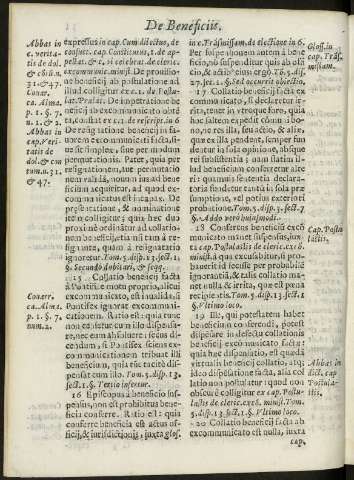 De Beneficiis.
Abbas in
c. verita-
tis de dol.
& cōtu. n.
31. & 47.
Couar.
ca. Alma.
p. 1. §. 7.
n. 1. & 2.
Abbas in
cap. Veri-
tatis de
dol. & con
tum. n. 31.
& 47.
Couarr.
ca. Alma.
p. 1. §. 7.
num. 2.
expressus in cap. Cum dilectus, de
consuet. cap. Constitutis, 1. de ap-
pellat. & c. si celebrat. de cleric.
excommunic. minist. De prouisio-
ne beneficij ab postulatione ad
illud colligitur ex c. 1. de Postu-
lat. Prælat. De impetratione be-
neficij ab excommunicato obtē
ta, constat ex c. 1. de rescript. in 6
De resignatione beneficij in fa-
uorem excommunicati facta, si-
ue sit simplex, siue per modum
permutationis. Patet, quia per
resignationem, seu permutatio
nem valida, nouum ius ad bene
ficium acquiritur, ad quod ex-
communicatus est incapax. De
præsentatione, & nominatione
res in colligitur; quia hæc duo
proximè ordinātur ad collatio-
nem beneficij, etiā si tam à re-
signante, quàm à resignatario
ignoretur. Tom. 5. disp. 13. sect. 1.
§. Secundò dubitari, & seqq.
15 Collatio beneficij facta
à Pontifice motu proprio, alicui
excommunicato est inualida, si
Pontifex ignorat excommuni-
cationem. Ratio est: quia tunc
non censetur cum illo dispensa-
re, nec eam absoluere: secus di-
cendum, si Pontifex sciens ex-
communicationem tribuat illi
beneficium, quia tūc tacitè dis-
pensat cum illo. Tom. 5. disp. 13.
sect. 1. §. Tertio infertur.
16 Episcopus à beneficio sus-
pensus, non est prohibitus bene-
ficiū conferre. Ratio est: quia
conferre beneficiū est actus of-
ficij, & iurisdictionis, iuxta glos.
in c. Trāsmissam, de electione in 6.
Per suspensionem autem à bene
ficio, nō suspenditur quis ab offi
cio, & actibus eius. ergo. To. 5. dif.
27. sect. 1. §. Sed occurrit obiectio.
17 Collatio beneficij facta ex
communicato, si declaretur ir-
rita, tenet in vtroque foro, quia
hoc saltem expedit communi bo-
no, ne res illa, seu actio, & aliæ,
quæ ex illa pendent, semper fun
dentur in sola opinione, absque
rei subsistentia; nam statim il-
lud beneficium conferetur alte
ri omnia sententia declara-
toria fundetur tantū in sola præ
sumptione, vel etiam probabili
opinione. Tom. 5. disp. 3. sect. 7
§. Addo verò huiusmodi.
18 Conferens beneficiū excō
municato non est suspensus, iux-
ta cap. Postulastis de cleric. exc.
minist. à qua excusabitur, si pro-
bauerit id fecisse per probabilē
ignorātiam. collatio tamen ma-
net nulla & irrita, quæ est pœna
recipientis. Tom. 5. disp. 13. sect. 1
§. Vltimo loco.
19 Illi, qui potestatem habet
beneficium conferendi, potest
dispensare in defectu collationis
beneficij excommunicato facta:
quia hoc dispensatio, est quædā
virtualis beneficij collatio, at qui
idē dispensatione facta, alia col
latio non postulatur quod non
obscurè colligitur ex cap. Postu-
lastis de cleric. exc. minist. Tom.
5. disp. 13. sect. 1. §. Vltimo loco.
20 Collatio beneficij facta ab
excommunicato est nulla, iuxta
cap.
Glos. in
cap. Trās-
missam.
Cap. Postu
lastis.
Abbas in
dict. cap.
Postula-
stis.